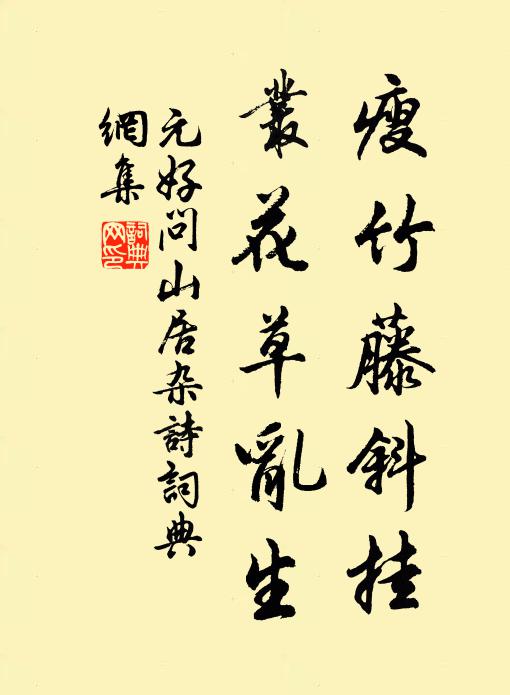 瘦竹藤斜挂
叢花草亂生
元好问山居杂詩詞典
網集
詞典
网印